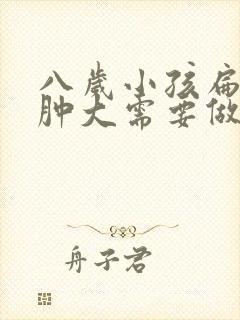 八歲小孩扁
肿大需要做
舟子君